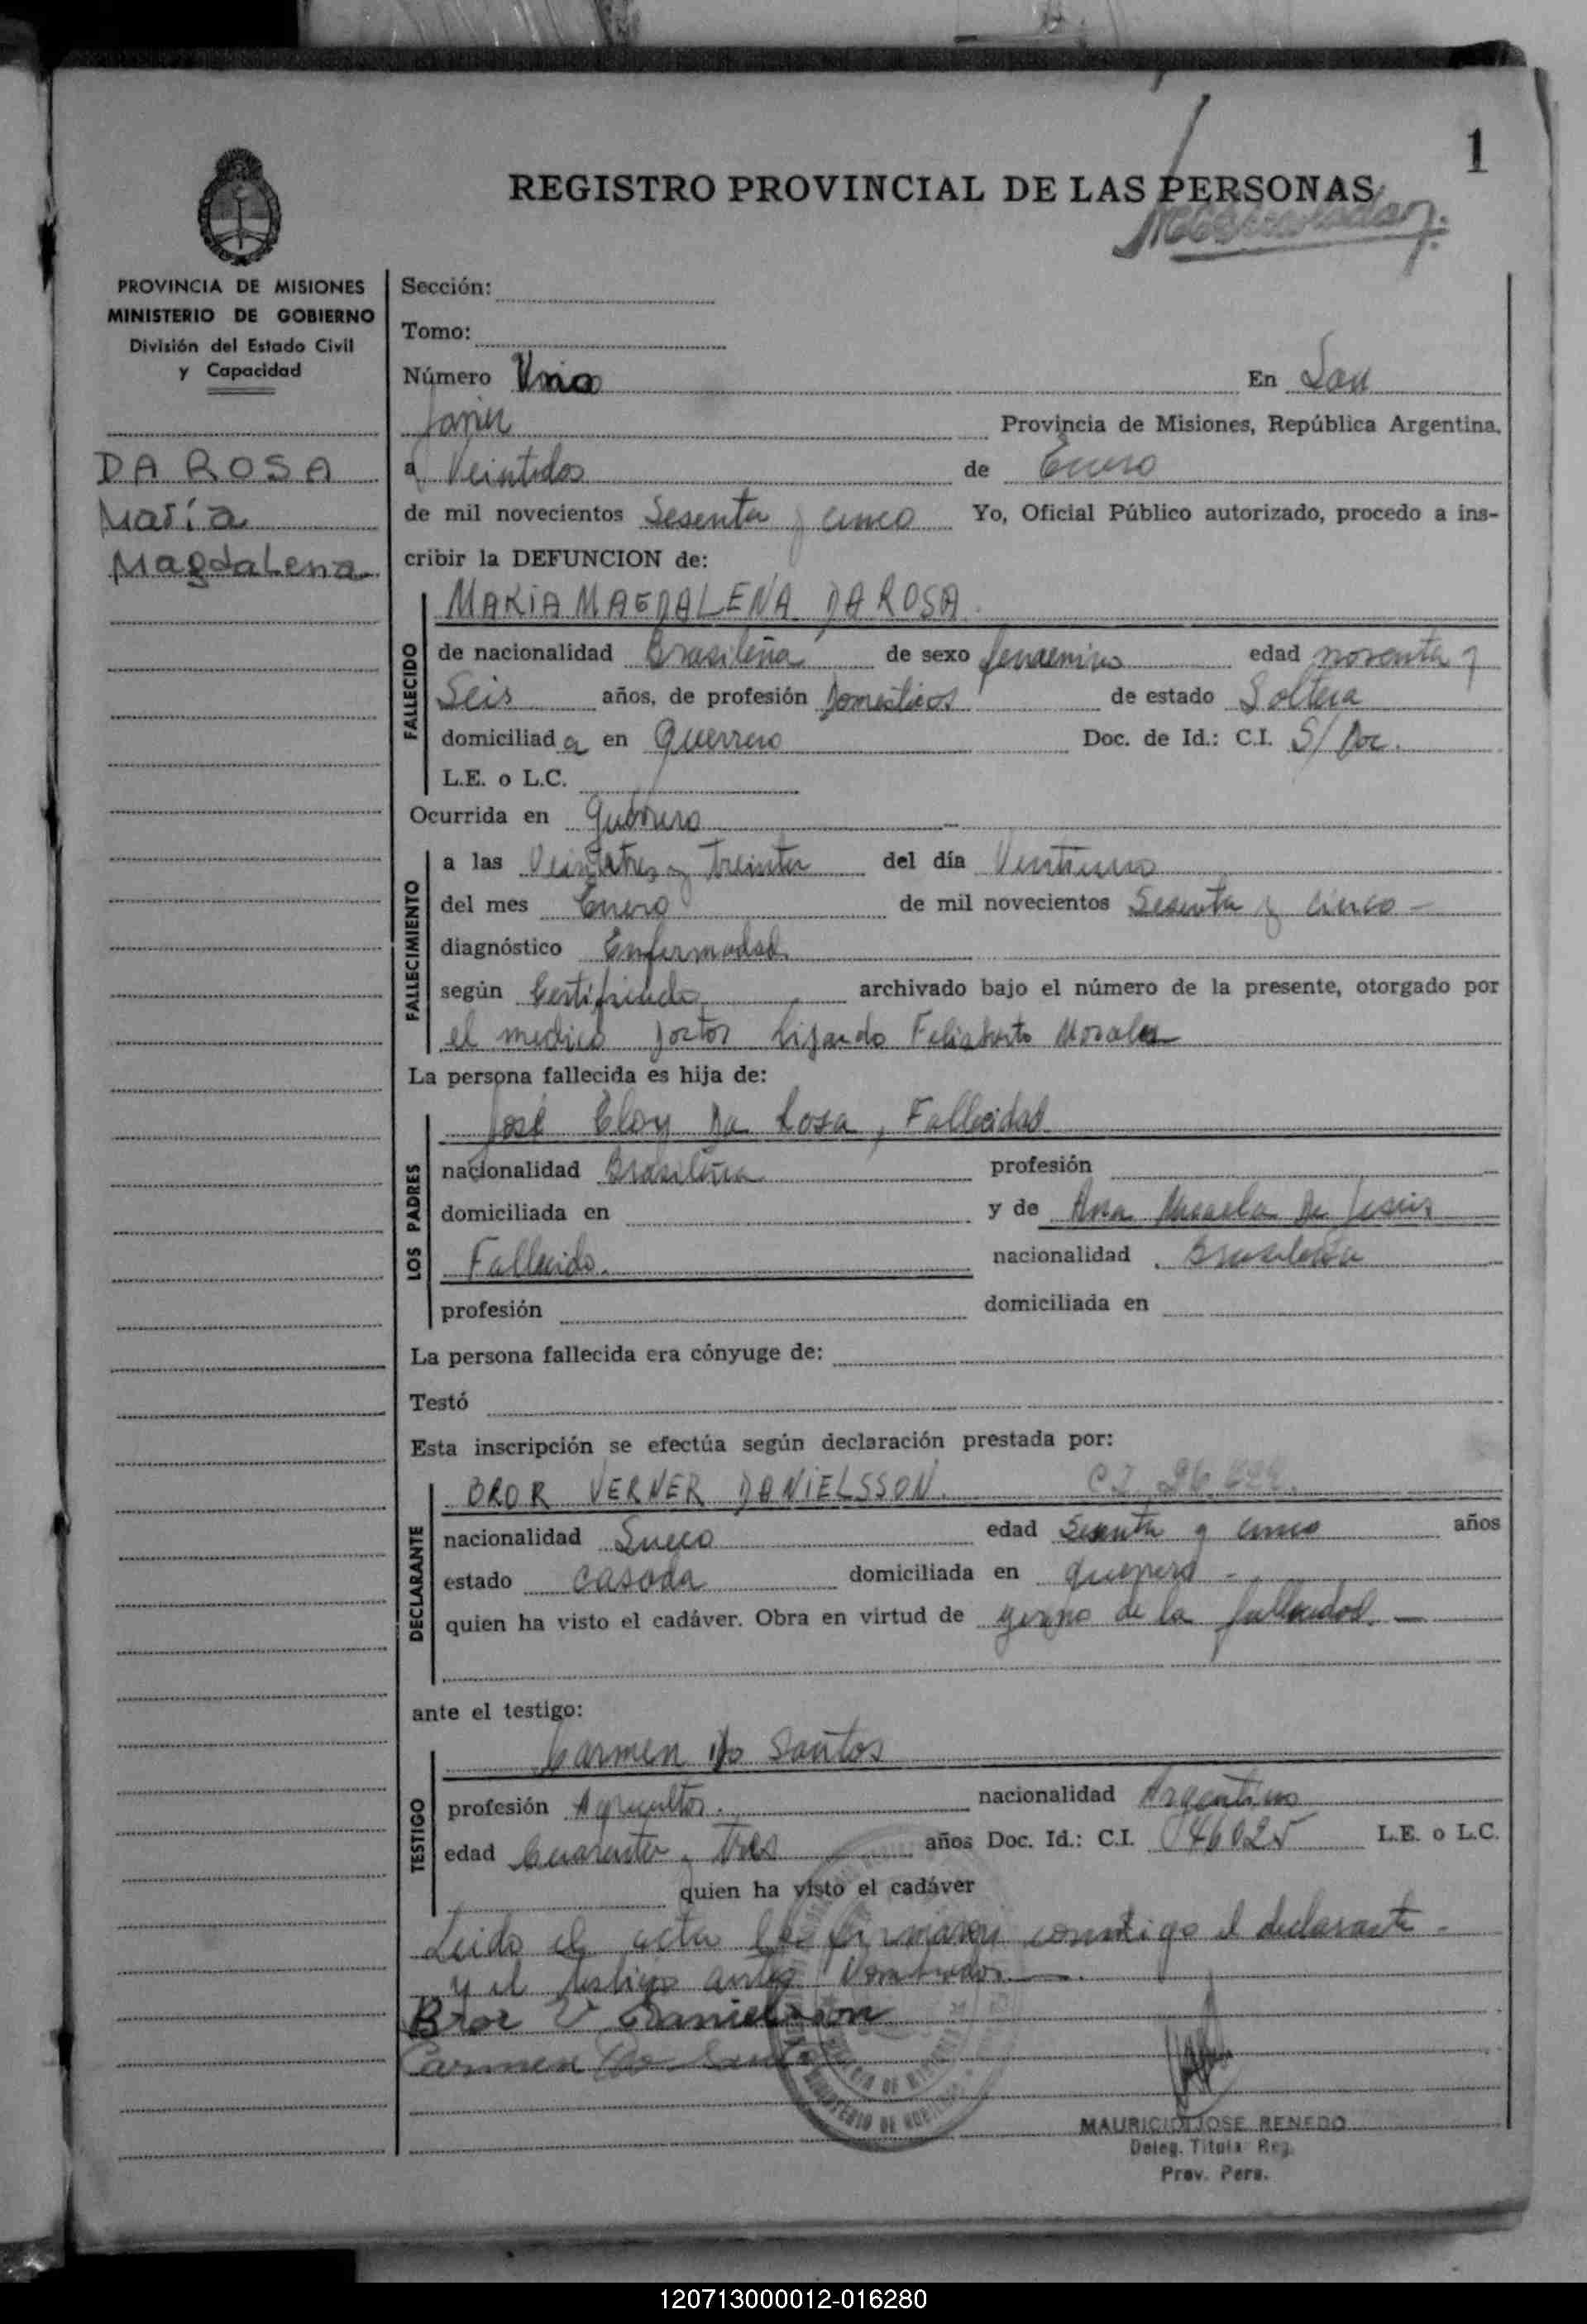 1
REGISTRO PROVINCIAL DE LAS PERSONAS
PROVINCIA DE MISIONES
MINISTERIO DE GOBIERNO
División del Estado Civil
y Capacidad
DA ROSA
María
Magdalena
Sección:
Tomo:
Número Uno En San
Javier Provincia de Misiones, República Argentina,
a Veintidos de Enero
de mil novecientos Sesenta y cinco Yo, Oficial Público autorizado, procedo a ins-
cribir la DEFUNCION de:
FALLECIDO
MARIA MAGDALENA DA ROSA.
de nacionalidad Brasileña de sexo femenino edad noventa y
Seis años, de profesión Domesticos de estado Soltera
domiciliad a en Guerrero Doc. de Id.: C.I. S/ Doc.
L.E. o L.C.
Ocurrida en Guerrero
FALLECIMIENTO
a las Veintitres y Treinta del día Ventiuno
del mes Enero de mil novecientos Sesenta y cinco -
diagnóstico Enfermedad
según Certificado archivado bajo el número de la presente, otorgado por
el medico Doctor Morales
La persona fallecida es hija de:
LOS PADRES
José Eloy Da Rosa, Fallecidad
nacionalidad Brasileña profesión
domiciliada en y de Ana De Jesús
Fallecido. nacionalidad Brasileña
profesión domiciliada en
La persona fallecida era cónyuge de:
Testó
Esta inscripción se efectúa según declaración prestada por:
DECLARANTE
BROR VERNER DANIELSSON. C I
nacionalidad Sueco edad Sesenta y cinco años
estado casada domiciliada en Guerrero -
quien ha visto el cadáver. Obra en virtud de yerno de la fallecidad. —
ante el testigo:
TESTIGO
Carmen Do Santos
profesión Agricultor. nacionalidad Argentino
edad Cuarenta y Tres años Doc. Id.: C.I. L.E. o L.C.
quien ha visto el cadáver
Leido el acta la firmaron conmigo el declarante -
y el testigo antes Nombrados —.
Bror V Danielsson
Carmen Do Santos
MAURICIO JOSE RENEDO
Deleg. Titular Reg.
Prov. Pers.
120713000012-016280